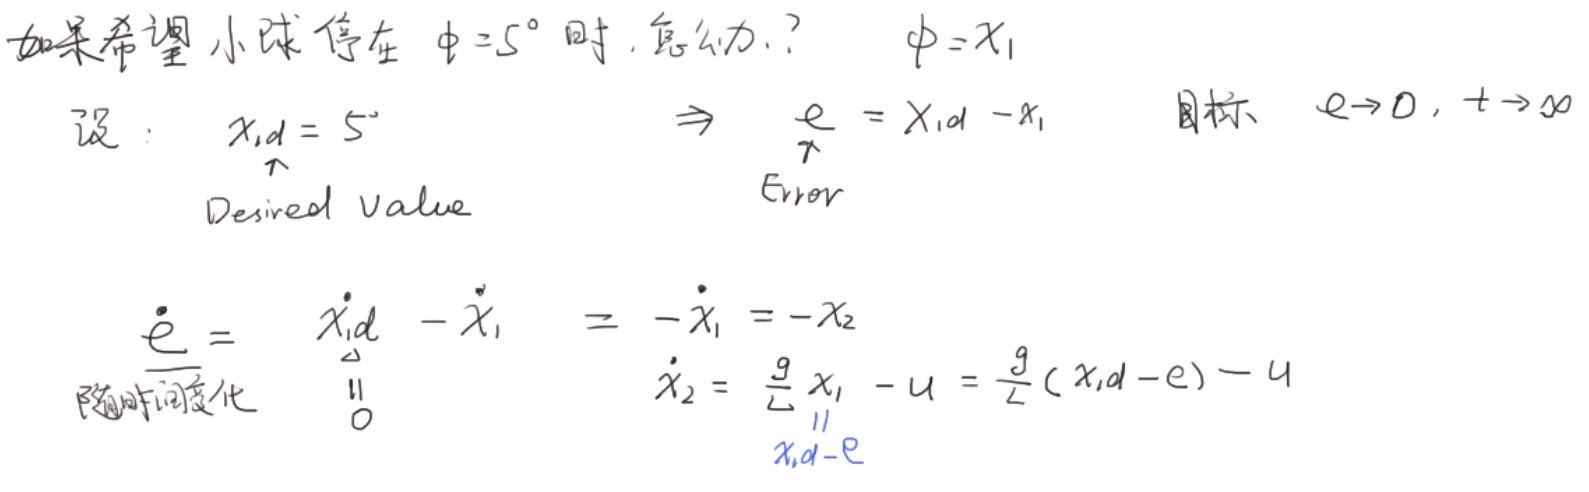 如果希望小球停在 ϕ=5° 时.怎么办.? ϕ=x₁
设: x₁d = 5° ⇒ e = x₁d - x₁ 目标 e→0, t→∞
↑ ↑
Desired value Error
ė = ẋ₁d - ẋ₁ = -ẋ₁ = -x₂
随时间变化 = 0 ẋ₂ = g/L x₁ - u = g/L (x₁d - e) - u
= x₁d - e